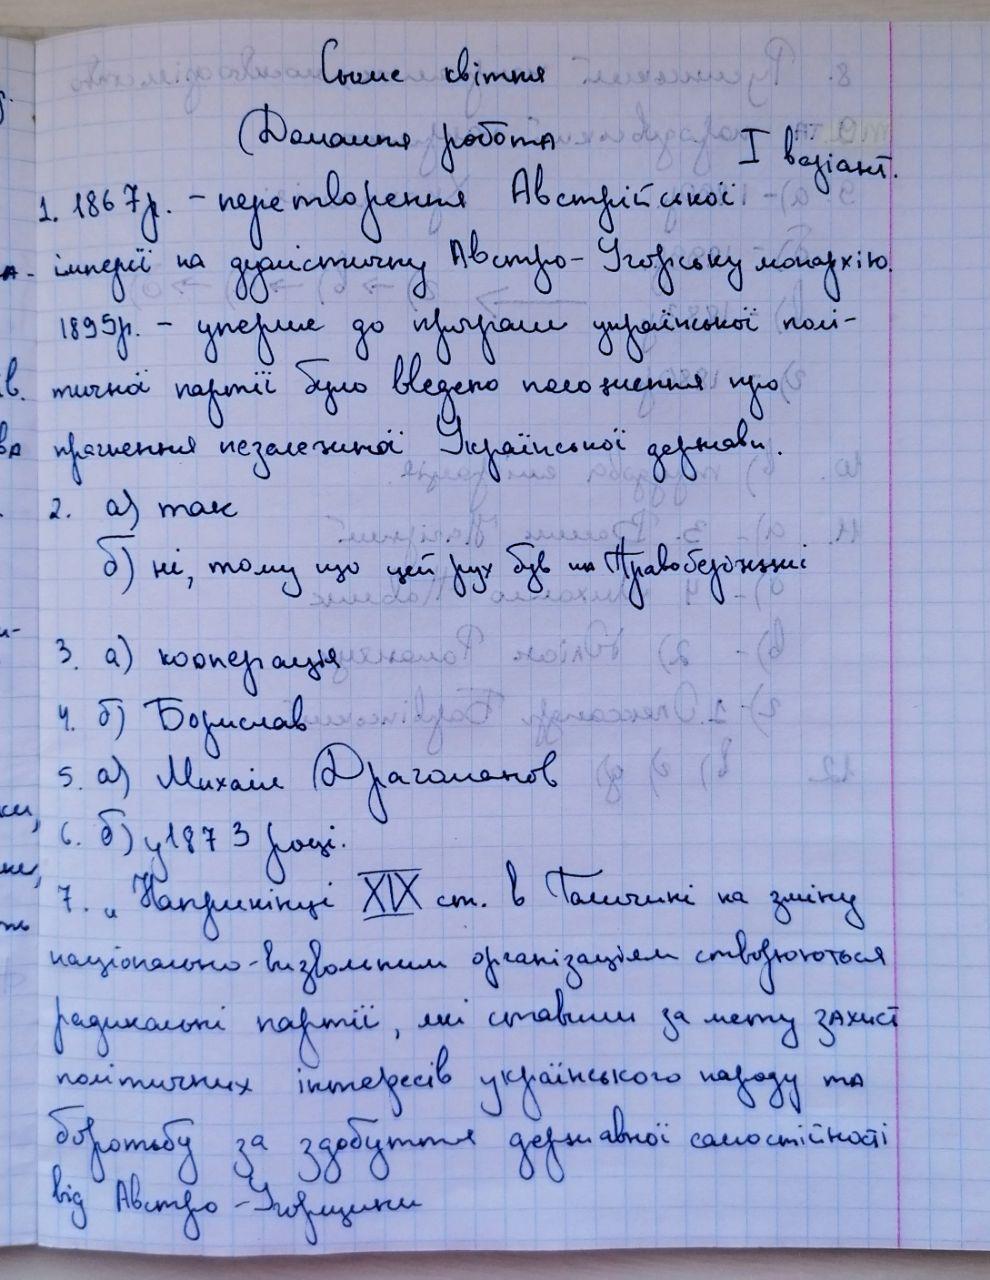 Сьоме квітня
Домашня робота
І варіант.
1. 1867р. – перетворення Австрійської
імперії на дуалістичну Австро-Угорську монархію.
1895р. – уперше до програм української полі-
тичної партії було введено положення про
прагнення незалежної Української держави.
2. а) так
б) ні, тому що цей рух був на Правобережжі
3. а) кооперація
4. б) Борислав
5. а) Михаїл Драгоманов
6. б) у 1873 році.
7. „Наприкінці ХІХ ст. в Галичині на зміну
національно-визвольним організаціям створюються
радикальні партії, які ставили за мету захист
політичних інтересів українського народу та
боротьбу за здобуття державної самостійності
від Австро-Угорщини